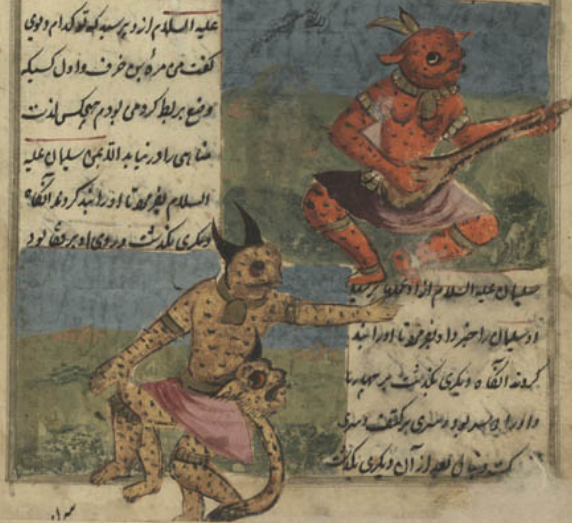 علیه السلام از و پرسید که تو کدام دیوی
گفت من مره بن خرف و اول کسیکه
وضع بربط کرد من بودم هیچکس لذت
ملاهی را در نیابد الا بمن سلیمان علیه
السلام بفرمود تا او را بند کردند آنگاه
دیگری بگذشت و روی او بر قفا بود
سلیمان علیه السلام از
او سلیمان را خبر داد بفرمود تا او را بند
کردند آنگاه دیگری بگذشت بر
و او را سر بود و سری بر کتف و سری
بعد از آن دیگری بگذشت